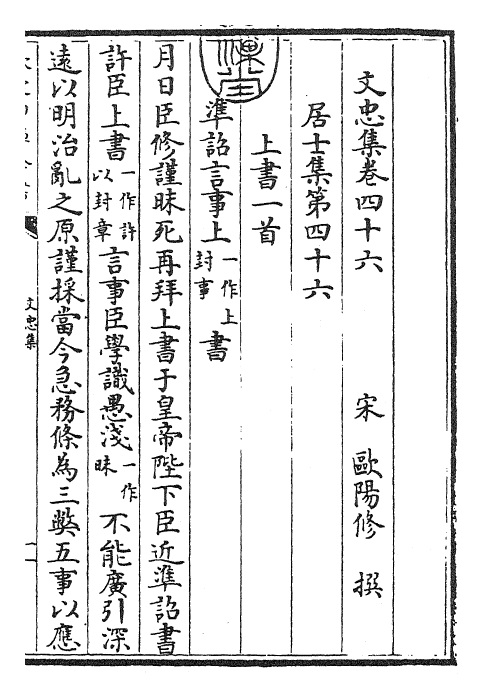 文忠集卷四十六
宋 歐陽修 撰
居士集第四十六
上書一首
準詔言事上一作上封事書
月日臣修謹昧死再拜上書于皇帝陛下臣近準詔書
許臣上書一作許以封章言事臣學識愚淺一作昧不能廣引深
遠以明治亂之原謹採當今急務條為三弊五事以應
文忠集
一